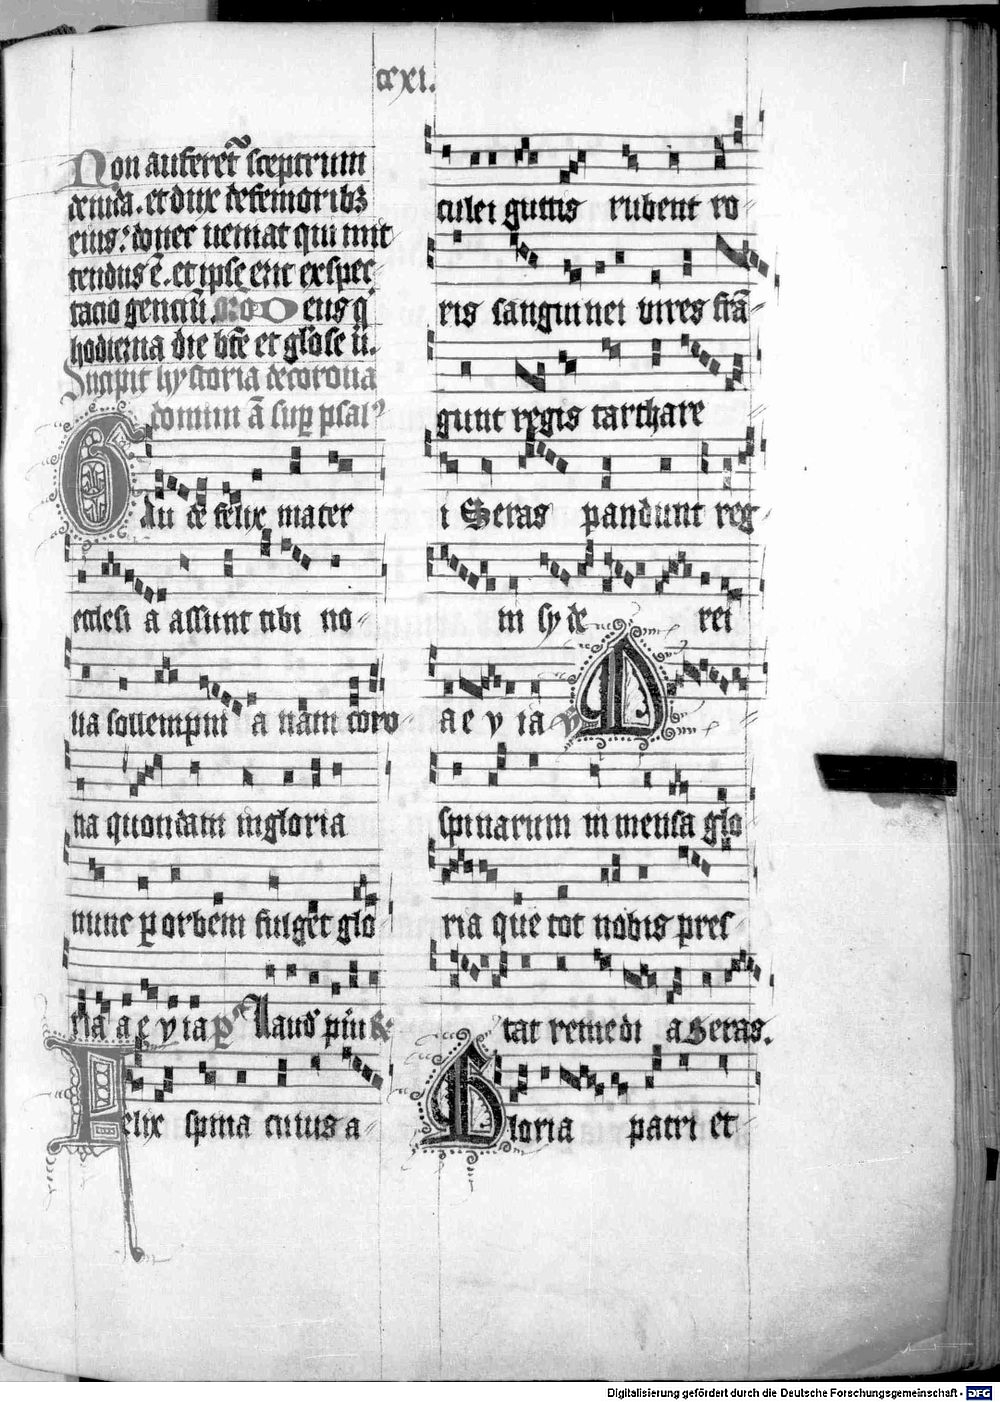 ccxi.
Non auferet᷑ sceptrum
de iuda. et dux de femoribꝫ
eius: donec ueniat qui mit
tendus ē. et ipse erit expec
tacio genciū. Deus q
hodierna die
Incipit hystoria de corona
domini ā sup psal᷒
Gau de felix mater
ecclesi a assunt tibi no-
ua sollempni a nam coro
na quondam in gloria
nunc ꝑ orbem fulget glo
ria a e v ia p᷒ Laud
Felix spina cuius a-
culei guttis rubent ro
ris sanguinei vires frā-
gunt regis tarthare
i Seras pandunt reg-
ni sy de rei
a e v ia v̄ D
spinarum immensa glo
ria que tot nobis pres
tat remedi a Seras.
Gloria patri et
Digitalisierung gefördert durch die Deutsche Forschungsgemeinschaft - DFG